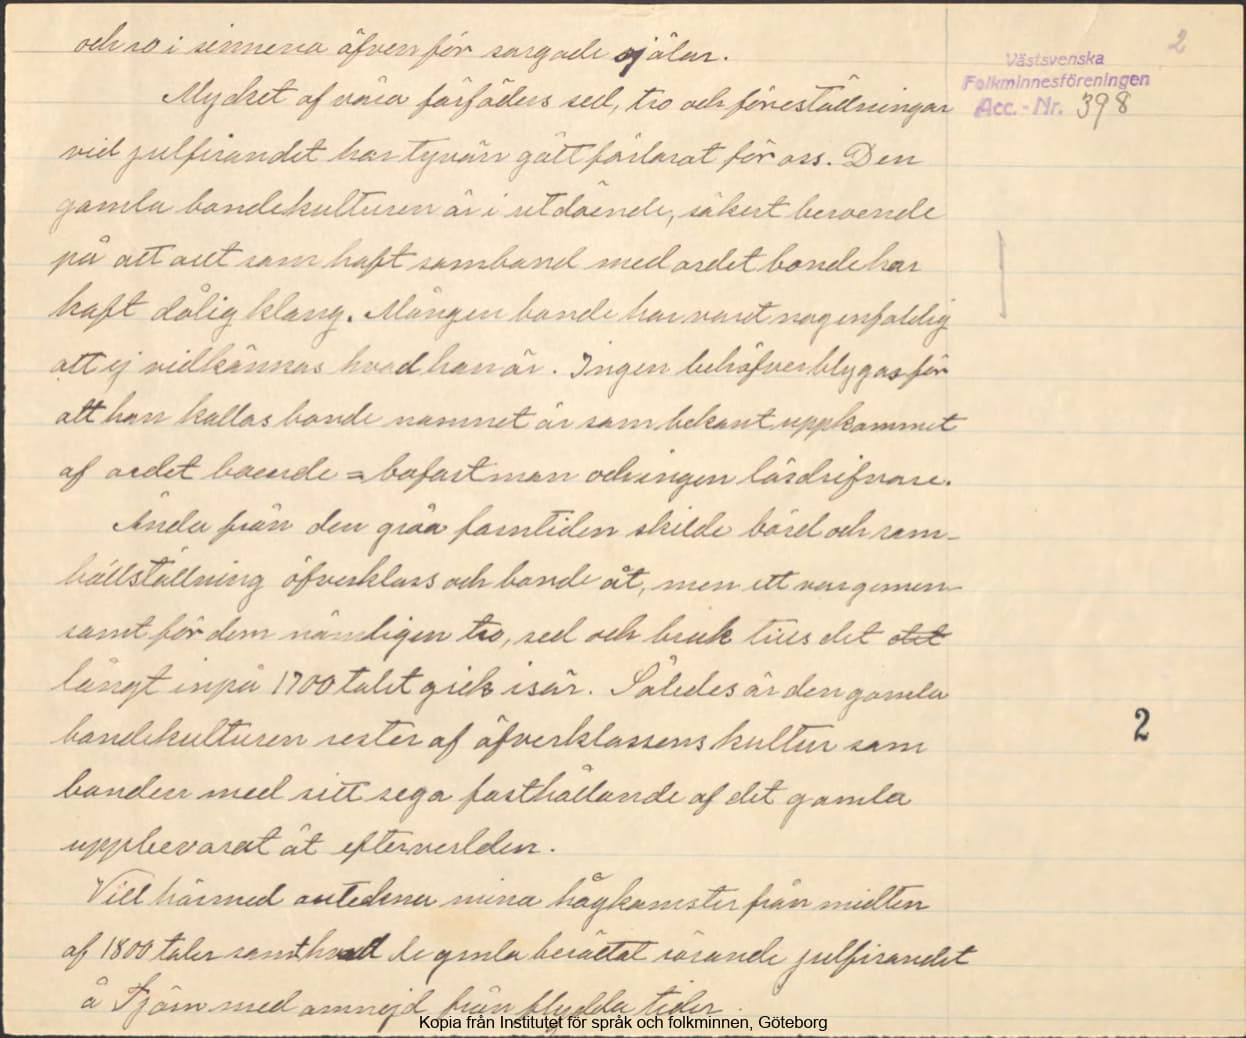 och ro i sinnena äfven för sargade själar.
Mycket af våra förfäders sed, tro och föreställningar
vid julfirandet har tyvärr gått förlorat för oss. Den
gamla bondekulturen är i utdöende, säkert beroende
på att allt som haft samband med ordet bonde har
haft dålig klang. Mången bonde har varit nog enfaldig
att ej vidkännas hvad han är. Ingen behöfver blygas för
att han kallas bonde namnet är som bekant uppkommet
af ordet boende = bofast man och ingen lösdrifvare.
Ända från den gråa forntiden skilde börd och sam-
hällställning öfverklass och bonde åt, men ett var gemen-
samt för dem nämligen tro, sed och bruk tills det
långt inpå 1700 talet gick isär. Således är den gamla
bondekulturen rester af öfverklassens kultur som
bonden med sitt sega fasthållande af det gamla
uppbevarat åt efterverlden.
Vill härmed anteckna mina hågkomster från midten
af 1800 talet samt hvad de gamla berättat rörande julfirandet
å Tjörn med omnejd från flydda tider.
2
Västsvenska
Folkminnesföreningen
Acc.-Nr. 398
2
Kopia från Institutet för språk och folkminnen, Göteborg